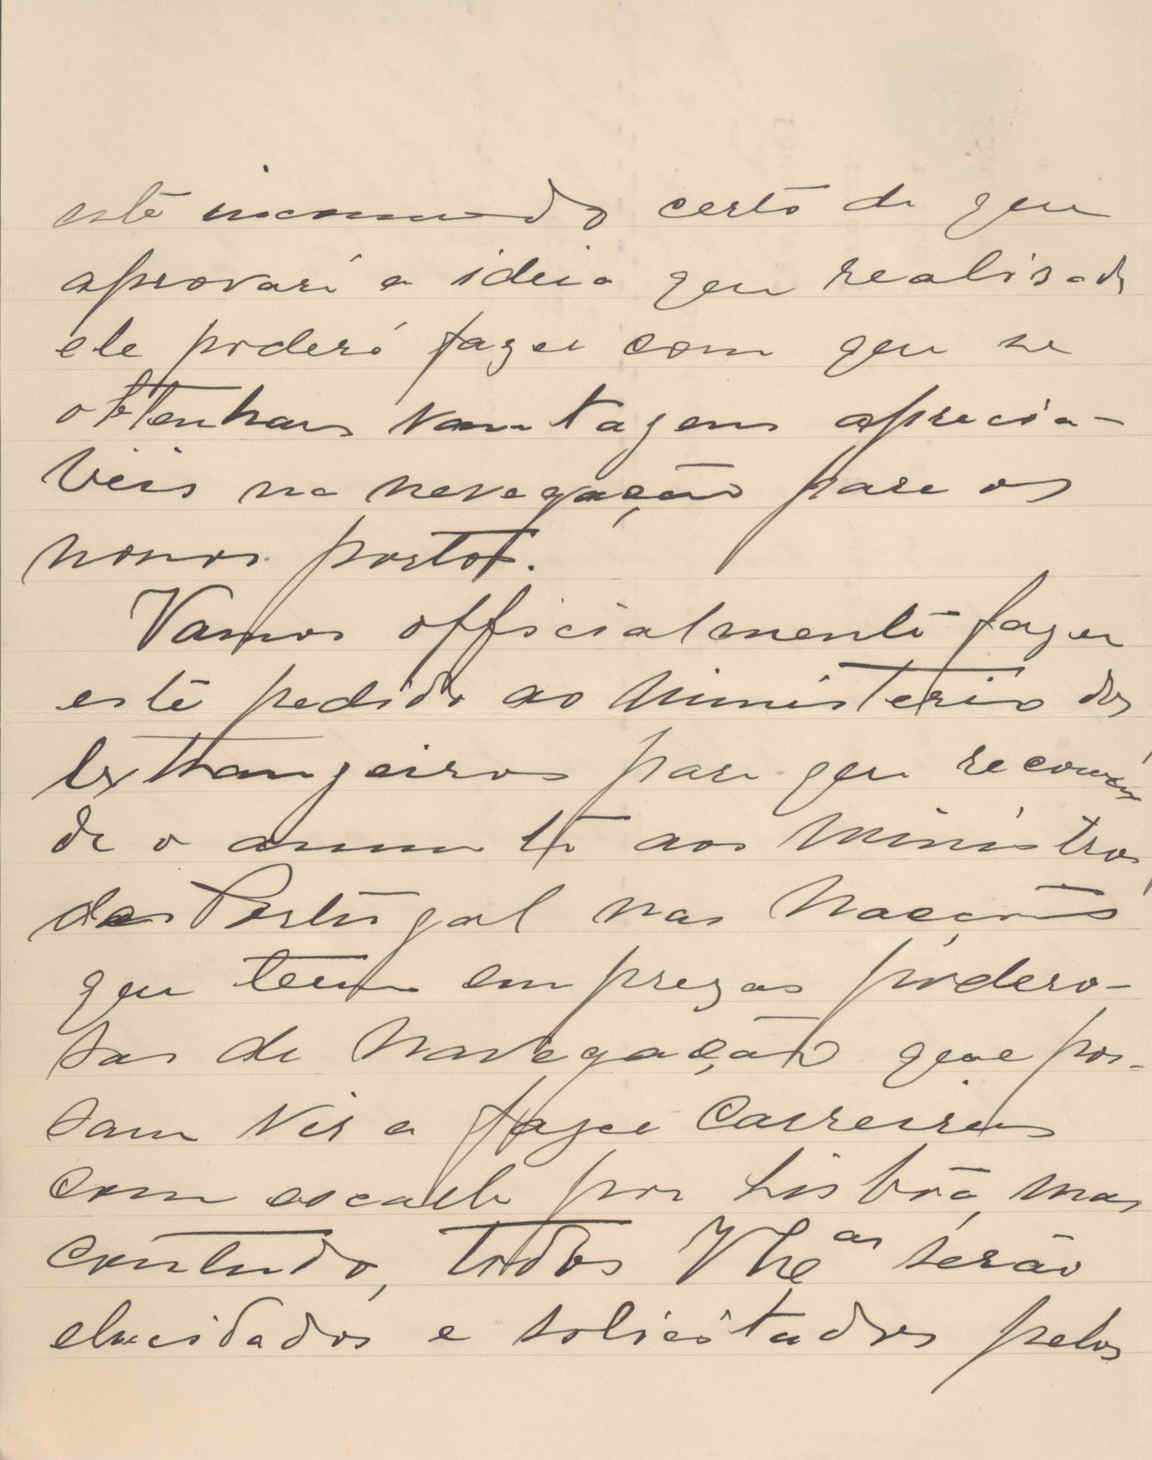 este incommodo certo de que
aprovará a ideia que realisada
ele poderá fazer com que se
obtenham vantagens aprecia-
veis na navegação para os
nossos portos.
Vamos officialmente fazer
este pedido ao Ministerio dos
Extrangeiros para que recomen
de o assumpto aos Ministros
de Portugal nas Nações
que teem emprezas podero-
sas de Navegação que pos-
sam vir a fazer carreiras
com escalla por Lisbôa, mas
contudo, todos V. Ex.as serão
elucidados e solicitados pelos